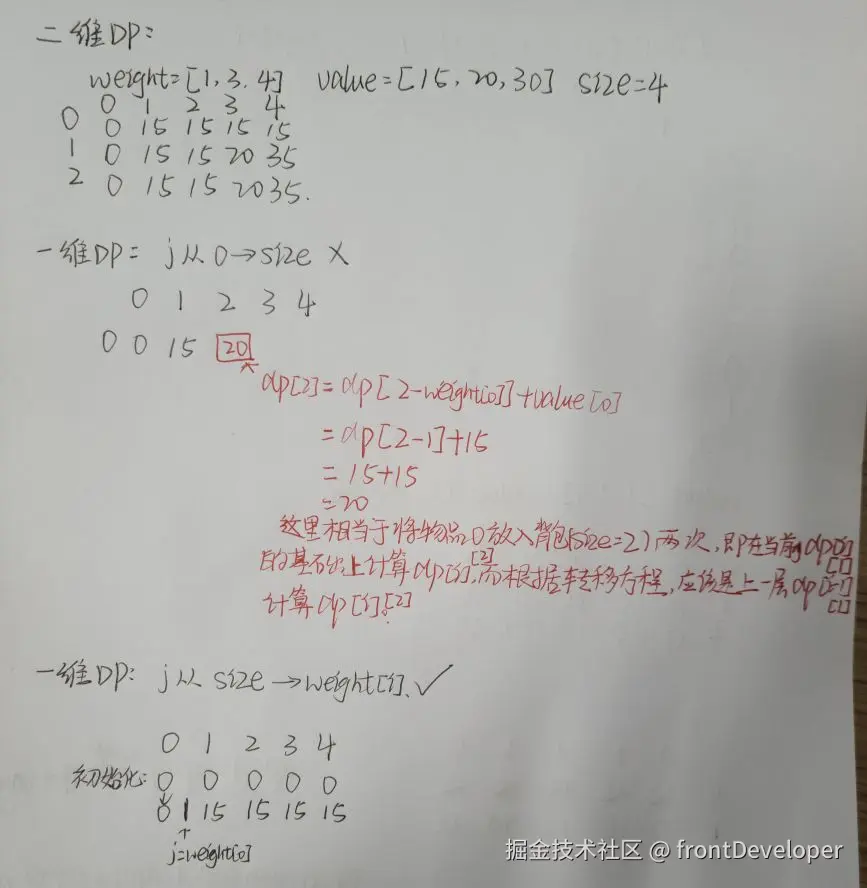 二维DP:
weight=[1,3.4] value=[15,20,30] size=4
0 1 2 3 4
0 0 15 15 15 15
1 0 15 15 20 35
2 0 15 15 20 35.
一维DP: j从0→size X
0 1 2 3 4
0 0 15 20
dp[2]=dp[2-weight[0]]+value[0]
=dp[2-1]+15
=15+15
=20
这里相当于将物品0放入背包(size=2)两次,即在当前dp[i][1]
的基础上计算dp[i][2],而根据转移方程,应该是上一层dp[i-1][1]
计算dp[i][2].
一维DP: j从size→weight[i].✓
0 1 2 3 4
初始化: 0 0 0 0 0
0 15 15 15 15
j=weight[0]
掘金技术社区 @ frontDeveloper